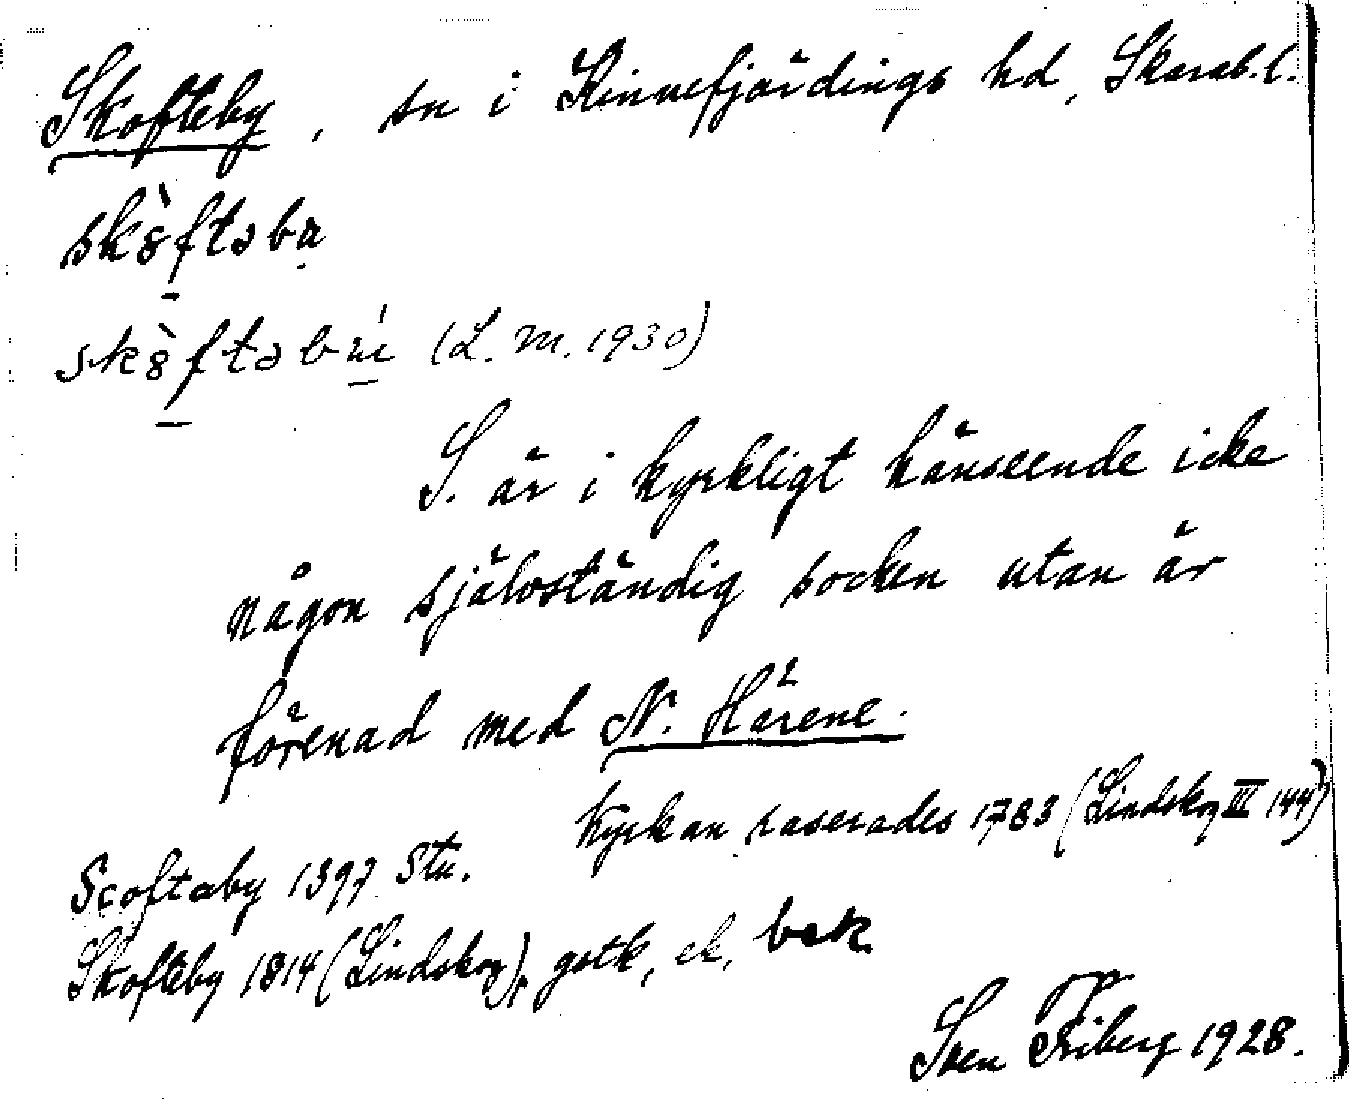 Skofteby, sn i Kinnefjärdings hd, Skarab.l.
(L. M. 1930)
S. är i kyrkligt hänseende icke
någon självständig socken utan är
förenad med N. Härene.
Kyrkan raserades 1783 (Lindskog III 144)
Scoftaby 1397 Stu.
Skofteby 1814 (Lindskog), gstk, ek, bsk
Sven Friberg 1928.